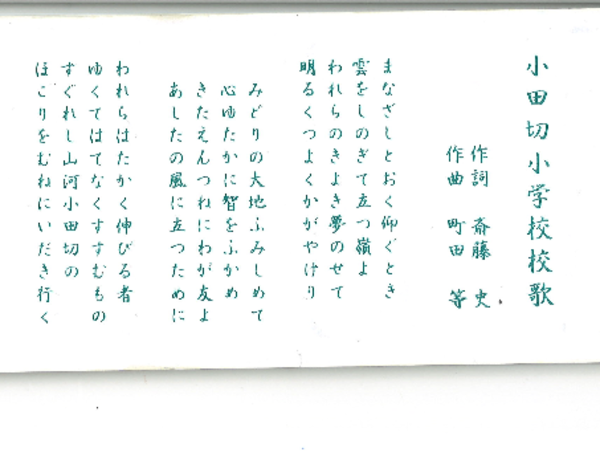 小田切小学校校歌
作詞 斎藤 史
作曲 町田 等
まなざしとおく仰ぐとき
雲をしのぎて立つ嶺よ
われらのきよき夢のせて
明るくつよくかがやけり
みどりの大地ふみしめて
心ゆたかに智をふかめ
きたえんつねにわが友よ
あしたの風に立つために
われらはたかく伸びる者
ゆくてはてなくすすむもの
すぐれし山河小田切の
ほこりをむねにいだき行く